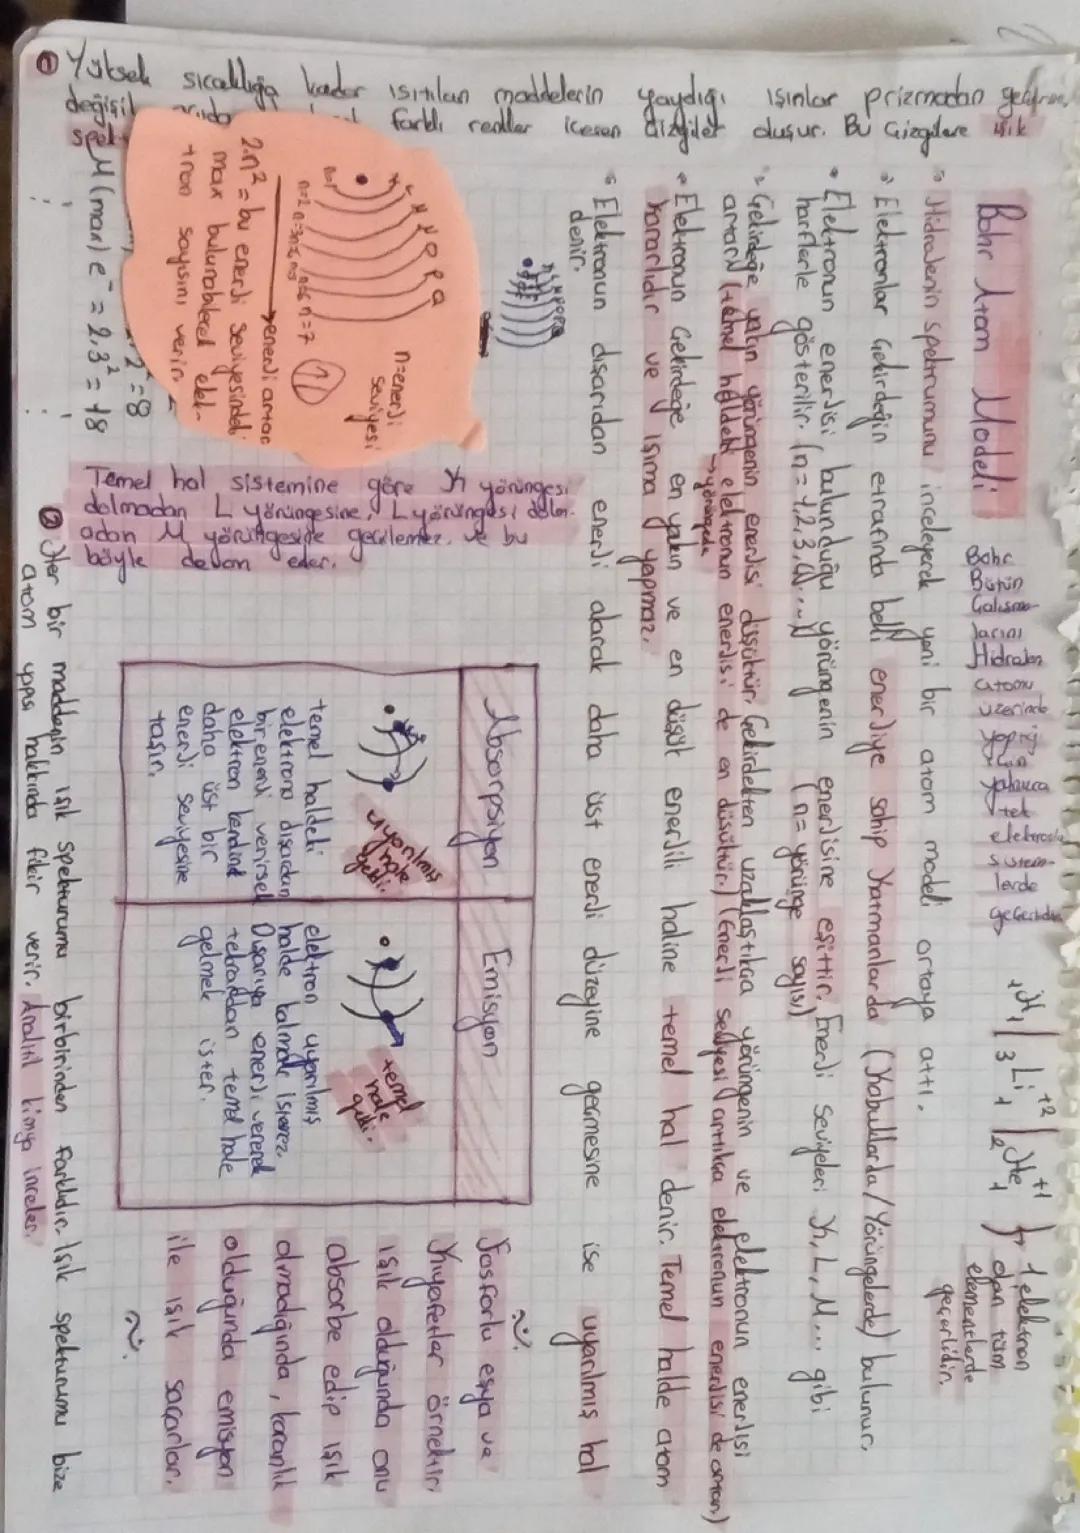 Bohr Atom Modeli
Bohr
Bütün
Çalışma-
larını
Hidrojen
atomu
üzerinde
yalnızca
tek
elektronlu
sistem-
lerde
geçerlidir
₁H₁ | ₃Li₁⁺² | ₂He₁⁺¹ } → 1 elektron
olan tüm
elementlerde
geçerlidir.
Hidrojenin spektrumunu inceleyerek yeni bir atom modeli ortaya attı.
Elektronlar Çekirdeğin etrafında belli enerjiye sahip katmanlarda (Kabuklarda/Yörüngelerde) bulunur.
Elektronun enerjisi bulunduğu yörüngenin enerjisine eşittir. Enerji seviyeleri K, L, M... gibi
harflerle gösterilir. (n = 1,2,3,4...) (n = yörünge sayısı)
Çekirdeğe yakın yörüngenin enerjisi düşüktür, Çekirdekten uzaklaştıkça yörüngenin ve elektronun enerjisi
artar. (temel haldeki elektronun enerjisi de en düşüktür.) (Enerji seviyesi arttıkça elektronun enerjisi de artar.)
→ yörüngede
Elektronun Çekirdeğe en yakın ve en düşük enerjili haline temel hal denir. Temel halde atom
kararlıdır ve ışıma yapmaz.
Elektronun dışarıdan enerji alarak daha üst enerji düzeyine geçmesine ise uyarılmış hal
denir.
K L M N O P Q
n=1 n=2 n=3 n=4 n=5 n=6 n=7
n=enerji
seviyesi
①
→ enerji artar
2.n² = bu enerji seviyesindeki
max bulunabilecek elek-
tron sayısını verir.
2 = 8
M (max) e⁻ = 2.3² = 18
Temel hal sistemine göre K yörüngesi
dolmadan L yörüngesine, L yörüngesi dolm-
adan M yörüngesine geçilemez. ve bu
böyle devam eder.
Absorpsiyon
uyarılmış
hale
geldi.
temel haldeki
elektrona dışardan
bir enerji verirsek
elektron kendini
daha üst bir
enerji seviyesine
taşır.
Emisyon
temel
hale
geldi.
elektron uyarılmış
halde kalmak istemez.
Dışarıya enerji vererek
tekrardan temel hale
gelmek ister.
Fosforlu eşya ve
kıyafetler örnektir.
ışık olduğunda onu
absorbe edip ışık
olmadığında, karanlık
olduğunda emisyon
ile ışık saçarlar.
① Yüksek sıcaklığa kadar ısıtılan maddelerin yaydığı ışınlar prizmadan
değişik farklı renkler içeren çizgiler oluşur. Bu Çizgilere ışık
spekt
② Her bir maddenin ışık spektrumu birbirinden farklıdır. Işık spektrumu bize
atom yapısı hakkında fikir verir. Analitik kimya inceler.